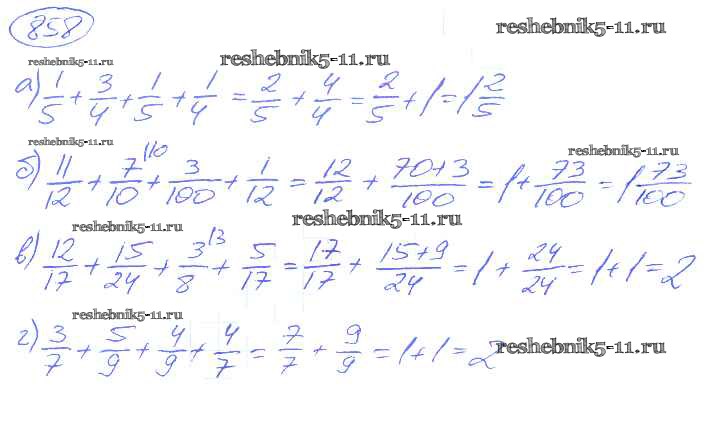 858
reshebnik5-11.ru
reshebnik5-11.ru reshebnik5-11.ru
а) 1/5 + 3/4 + 1/5 + 1/4 = 2/5 + 4/4 = 2/5 + 1 = 1 2/5
reshebnik5-11.ru reshebnik5-11.ru
б) 11/12 + 7/10 |10 + 3/100 + 1/12 = 12/12 + 70+3/100 = 1 + 73/100 = 1 73/100
reshebnik5-11.ru reshebnik5-11.ru
в) 12/17 + 15/24 + 3/8 |3 + 5/17 = 17/17 + 15+9/24 = 1 + 24/24 = 1+1 = 2
reshebnik5-11.ru
г) 3/7 + 5/9 + 4/9 + 4/7 = 7/7 + 9/9 = 1+1 = 2 reshebnik5-11.ru